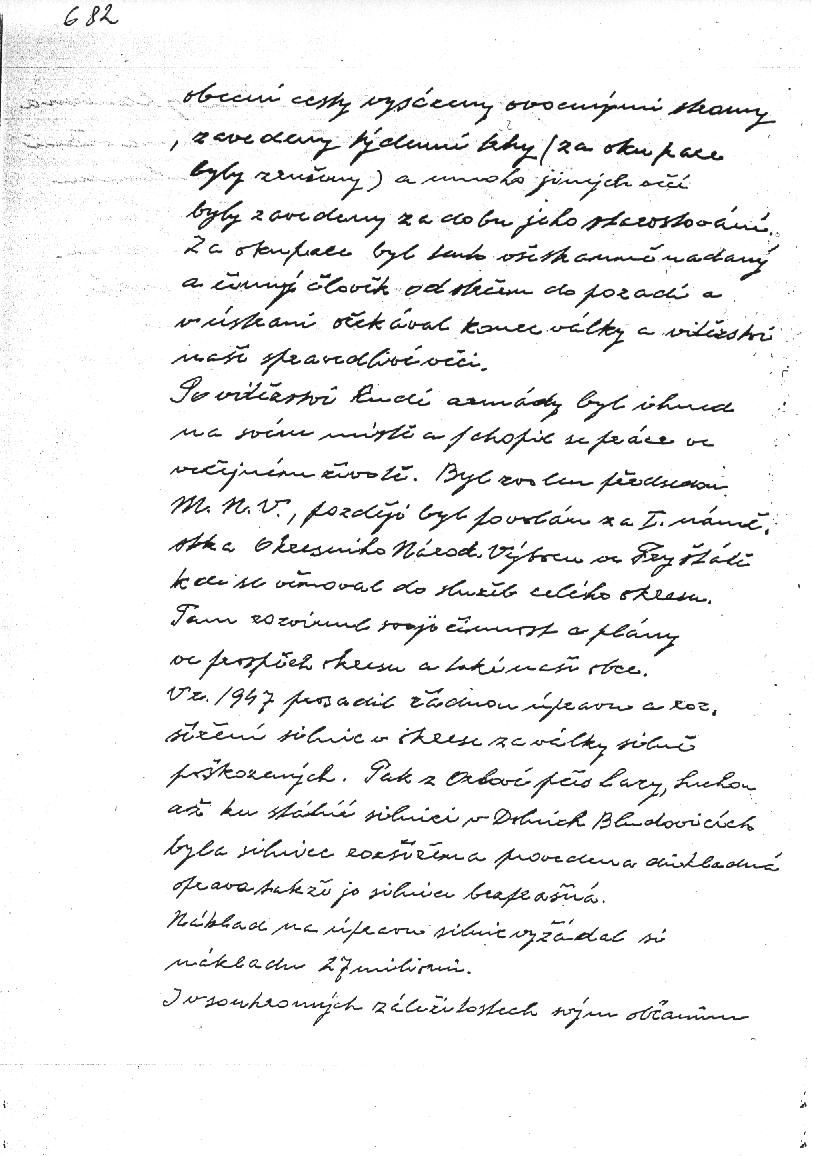 682
obecní cesty vysázeny ovocnými stromy
, zavedeny týdenní trhy (za okupace
byly zrušeny) a mnoho jiných věcí
byly zavedeny za dobu jeho starostování.
Za okupace byl tento všestranně nadaný
a činný člověk odstrčen do pozadí a
v ústraní očekával konec války a vítězství
naší spravedlivé věci.
Po vítězství Rudé armády byl ihned
na svém místě a chopil se práce ve
veřejném životě. Byl zvolen předsedou
M. N. V., později byl povolán za I. námě.
stka Okresního Národ. Výboru ve Fryštátě
kde se věnoval do služeb celého okresu.
Tam rozvinul svoji činnost a plány
ve prospěch okresu a také naší obce.
V r. 1947 prosadil řádnou úpravu a roz.
šíření silnic v okrese za války silně
poškozených. Tak z Orlové přes Lazy, Suchou
až ku státní silnici v Dolních Bludovicích
byla silnice rozšířena provedena důkladná
oprava takže je silnice bezprašná.
Náklad na úpravu silnic vyžádal si
nákladu 27 milionů.
I v soukromých záležitostech svým občanům